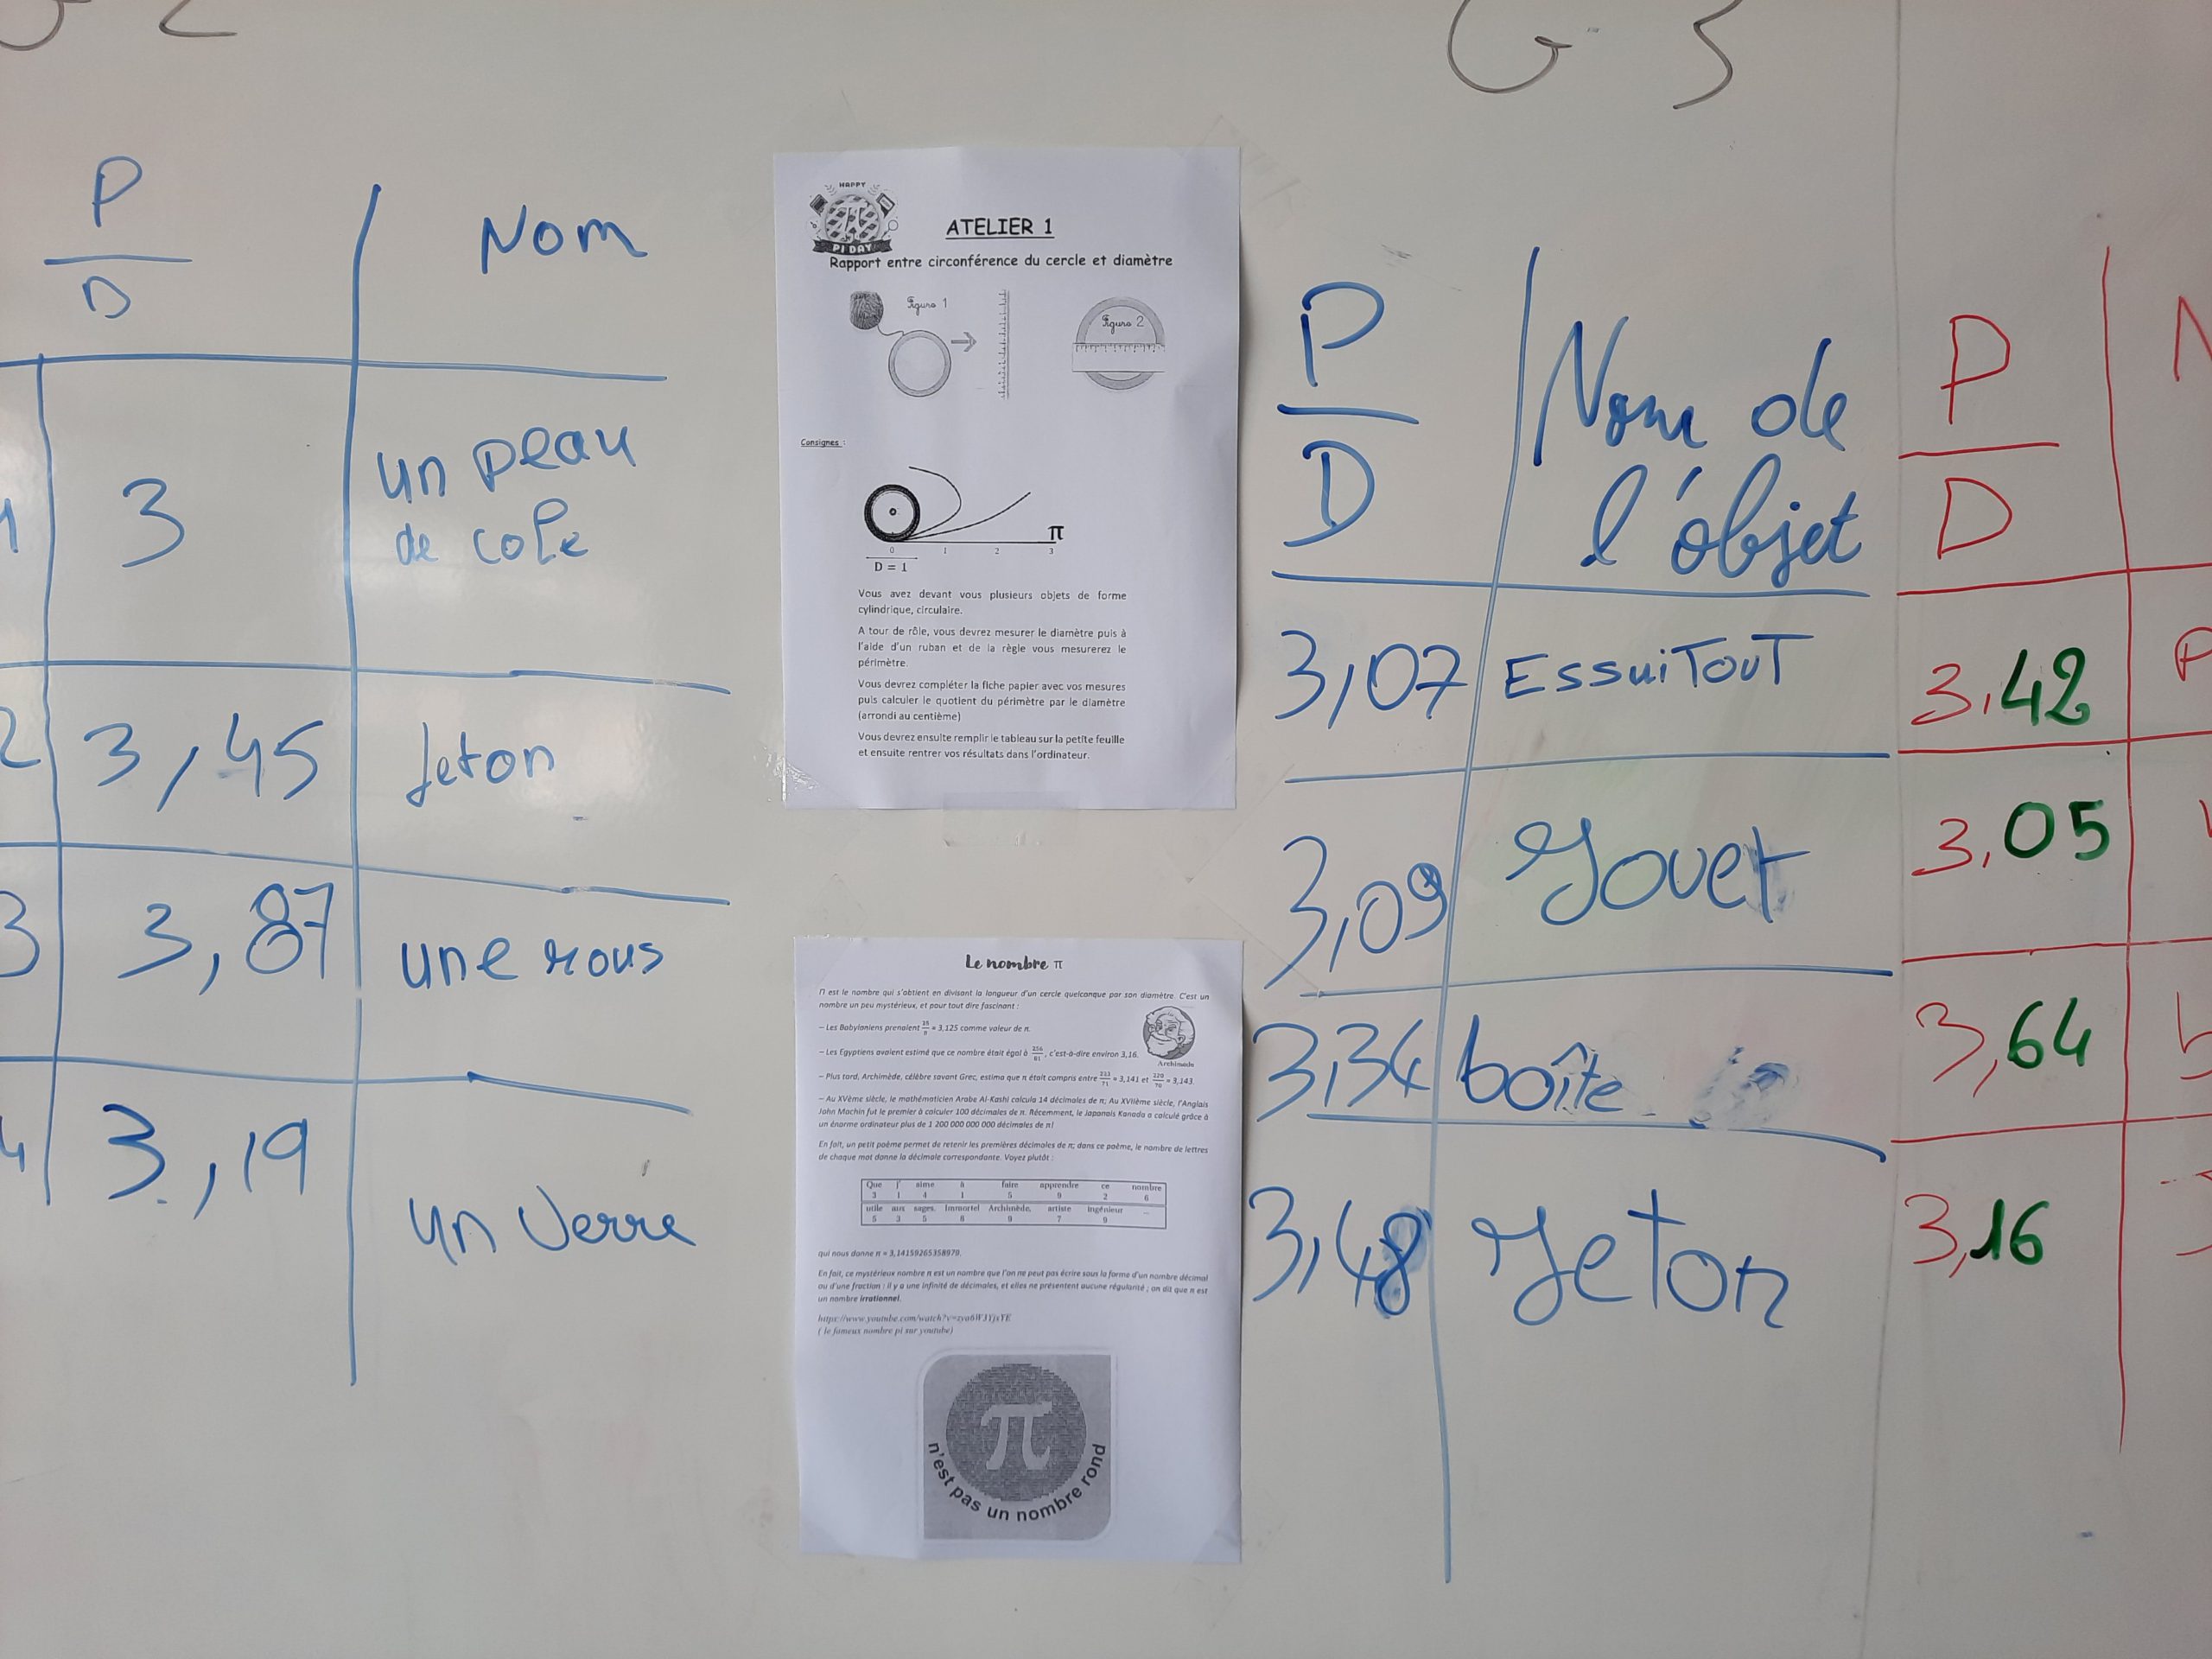 G 2
P
D
Nom
1
3
un peau
de cole
2
3,45
Jeton
3
3,87
une rous
4
3,19
un Verre
HAPPY
PI DAY
ATELIER 1
Rapport entre circonférence du cercle et diamètre
Figure 1
Figure 2
Consignes :
π
0 1 2 3
D = 1
Vous avez devant vous plusieurs objets de forme
cylindrique, circulaire.
A tour de rôle, vous devrez mesurer le diamètre puis à
l'aide d'un ruban et de la règle vous mesurerez le
périmètre.
Vous devrez compléter la fiche papier avec vos mesures
puis calculer le quotient du périmètre par le diamètre
(arrondi au centième)
Vous devrez ensuite remplir le tableau sur la petite feuille
et ensuite rentrer vos résultats dans l'ordinateur.
Le nombre π
Π est le nombre qui s'obtient en divisant la longueur d'un cercle quelconque par son diamètre. C'est un
nombre un peu mystérieux, et pour tout dire fascinant :
– Les Babyloniens prenaient 25/8 = 3,125 comme valeur de π.
– Les Egyptiens avaient estimé que ce nombre était égal à 256/81, c'est-à-dire environ 3,16.
Archimède
– Plus tard, Archimède, célèbre savant Grec, estima que π était compris entre 223/71 ≈ 3,141 et 220/70 ≈ 3,143.
– Au XVème siècle, le mathématicien Arabe Al-Kashi calcula 14 décimales de π; Au XVIIème siècle, l'Anglais
John Machin fut le premier à calculer 100 décimales de π. Récemment, le Japonais Kanada a calculé grâce à
un énorme ordinateur plus de 1 200 000 000 000 décimales de π!
En fait, un petit poème permet de retenir les premières décimales de π; dans ce poème, le nombre de lettres
de chaque mot donne la décimale correspondante. Voyez plutôt :
Que j' aime à faire apprendre ce nombre
3 1 4 1 5 9 2 6
utile aux sages. Immortel Archimède, artiste ingénieur ...
5 3 5 8 9 7 9
qui nous donne π ≈ 3,14159265358979.
En fait, ce mystérieux nombre π est un nombre que l'on ne peut pas écrire sous la forme d'un nombre décimal
ou d'une fraction : il y a une infinité de décimales, et elles ne présentent aucune régularité ; on dit que π est
un nombre irrationnel.
( le fameux nombre pi sur youtube)
π
n'est pas un nombre rond
G 3
P
D
Nom de
l'objet
3,07 EssuiTouT
3,09 Jouet
3,34 boîte
3,48 Jeton
P
D
3,42
3,05
3,64
3,16